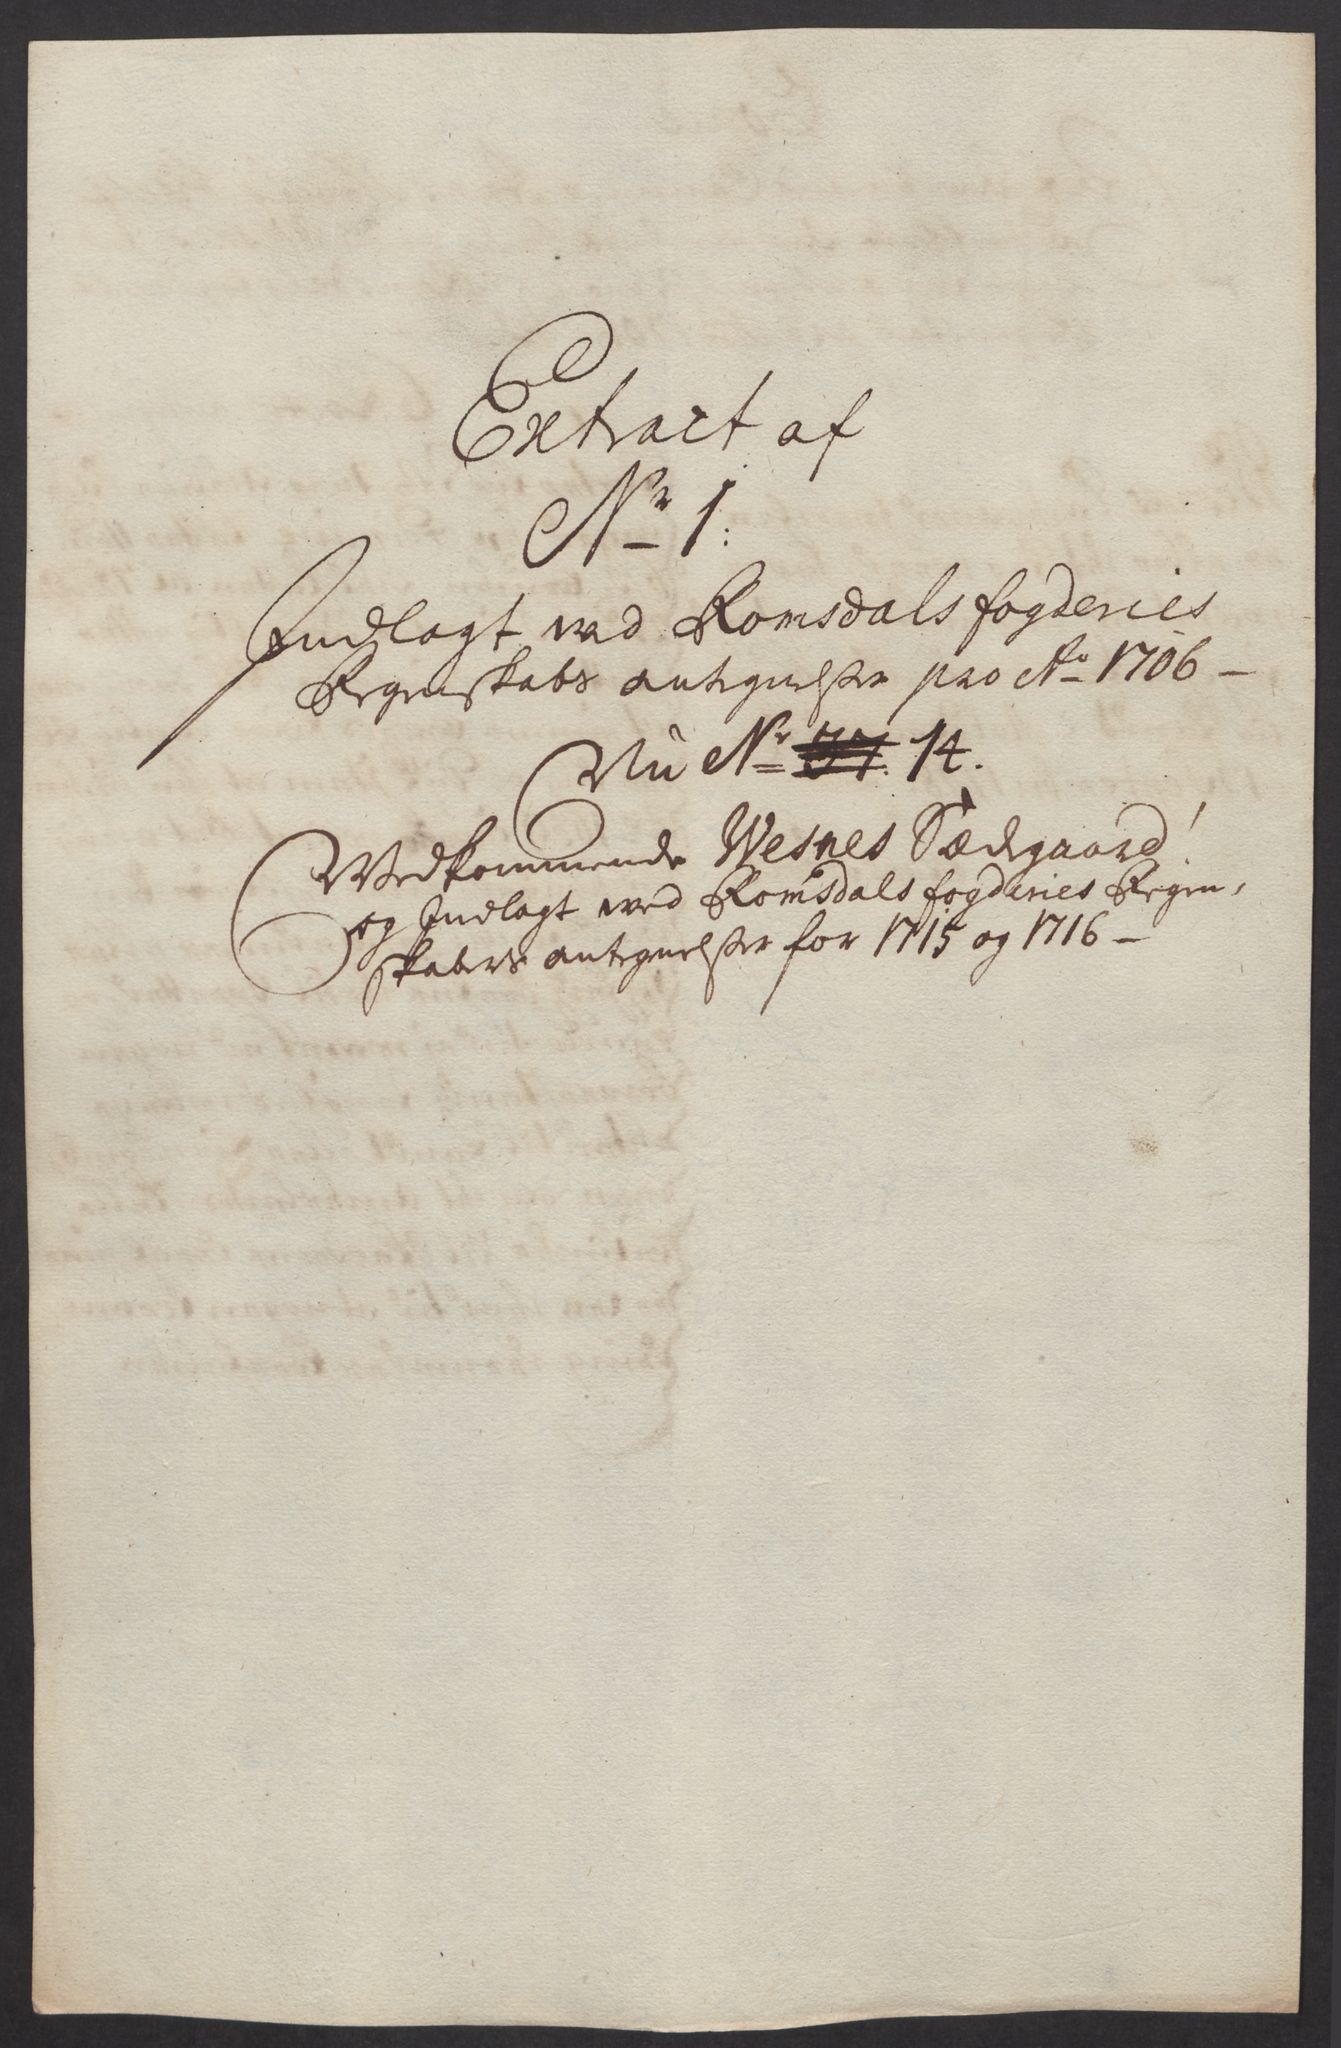 Extract af
No 1.
Indlagt ved Romsdals fogderies
Regenskabs antegnelßer pro Ao 1706 –
Nu No 37. 14.
Vedkommende Wesnes Sædegaard!
og Indlagt ved Romsdals fogderies Regen,
skabers antegnelßer for 1715 og 1716 –